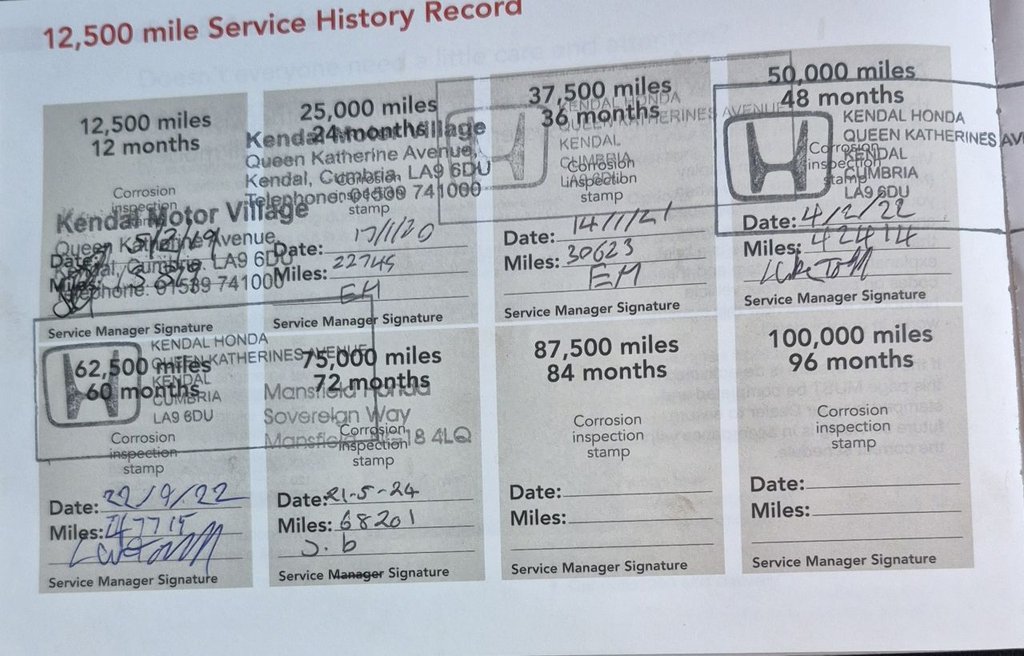 12,500 mile Service History Record
12,500 miles
12 months
Corrosion
inspection
Kendal Motor Village
Queen Katherine Avenue,
Kendal, Cumbria. LA9 6DU
Telephone: 01539 741000
Date:
Miles:
Service Manager Signature
25,000 miles
24 months
Kendal Motor Village
Queen Katherine Avenue,
Kendal, Cumbria. LA9 6DU
Telephone: 01539 741000
Corrosion
inspection
stamp
Date: 17/1/20
Miles: 22745
EH
Service Manager Signature
37,500 miles
36 months
KENDAL HONDA
QUEEN KATHERINES AVENUE
KENDAL
CUMBRIA
LA9 6DU
Corrosion
inspection
stamp
Date: 14/1/21
Miles: 30623
EH
Service Manager Signature
50,000 miles
48 months
KENDAL HONDA
QUEEN KATHERINES AV
KENDAL
CUMBRIA
LA9 6DU
Corrosion
inspection
stamp
Date: 4/2/22
Miles: 42414
Service Manager Signature
62,500 miles
60 months
KENDAL HONDA
QUEEN KATHERINES AVENUE
KENDAL
CUMBRIA
LA9 6DU
Corrosion
inspection
stamp
Date: 22/9/22
Miles: 47715
Service Manager Signature
75,000 miles
72 months
Mansfield Honda
Sovereign Way
Mansfield 18 4LQ
Corrosion
inspection
stamp
Date: 21-5-24
Miles: 68201
J. b
Service Manager Signature
87,500 miles
84 months
Corrosion
inspection
stamp
Date:
Miles:
Service Manager Signature
100,000 miles
96 months
Corrosion
inspection
stamp
Date:
Miles:
Service Manager Signature